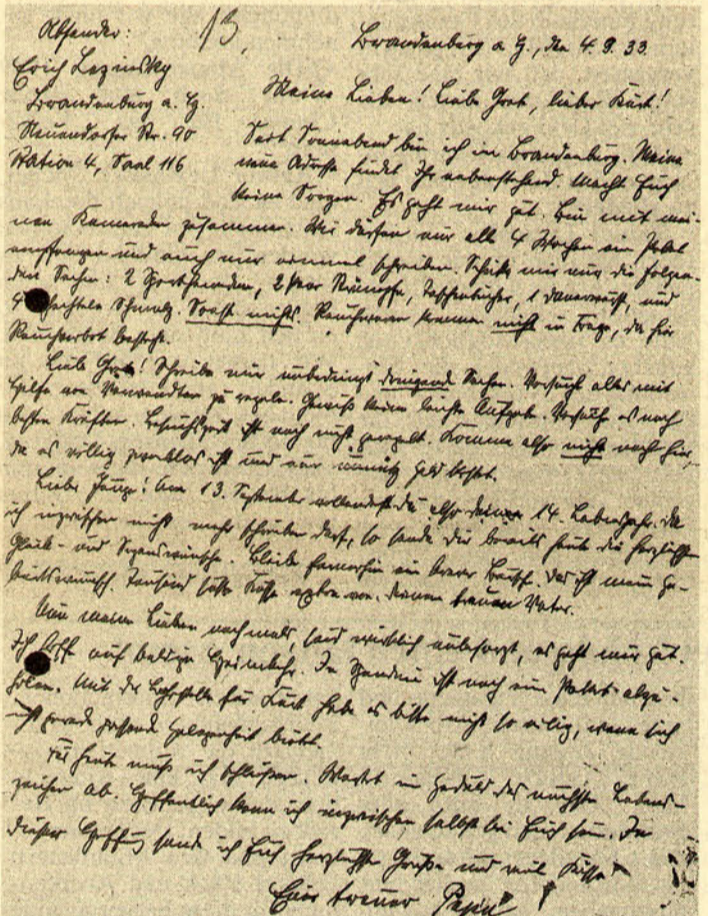 Absender:
13.
Brandenburg a. H., den 4. 9. 33.
Erich Lezinsky
Brandenburg a. H.
Neuendorfer Str. 90
Station 4, Saal 116
Meine Lieben! Liebe Gret, lieber Kurt!
Seit Sonnabend bin ich in Brandenburg. Meine
neue Adresse findet Ihr nebenstehend. Macht Euch
keine Sorgen. Es geht mir gut. Bin mit mei-
nen Kameraden zusammen. Wir dürfen nur alle 4 Wochen ein Paket
empfangen und auch nur einmal schreiben. Schickt mir nur die folgen-
den Sachen: 2 Sporthemden, 2 Paar Strümpfe, Taschentücher, 1 Dauerwurst, und
Schachteln Schmalz. Sonst nichts. Rauchwaren kommen nicht in Frage, da hier
Rauchverbot besteht.
Liebe Gret! Schreibe nur unbedingt dringende Sachen. Versuche alles mit
Hilfe von Verwandten zu regeln. Gewiß keine leichte Aufgabe. Versuche es nach
besten Kräften. Besuchszeit ist noch nicht geregelt. Komme also nicht nach hier,
da es völlig zwecklos ist und nur unnütz Geld kostet.
Lieber Junge! Am 13. September vollendest du also deine 14. Lebensjahr. Da
ich inzwischen nicht mehr schreiben darf, so sende Dir bereits heute die herzlichsten
Glück- und Segenswünsche. Bleibe fernerhin ein braver Bursche, das ist mein Ge-
burtswunsch. Tausend Küsse extra von Deinem treuen Vater.
Nun meine Lieben nochmals, seid wirklich unbesorgt, es geht mir gut.
Ich hoffe auf baldige Heimkehr. In Spandau ist noch ein Paket abzu-
holen. Mit der Lehrstelle für Kurt habe es bitte nicht so eilig, wenn sich
nicht gerade passende Gelegenheit bietet.
Für heute muß ich schließen. Wartet in Geduld das nächste Lebens-
zeichen ab. Hoffentlich kann ich inzwischen selbst bei Euch sein. In
dieser Hoffnung sende ich Euch herzlichste Grüße und viel Küsse!
Euer treuer Papa!